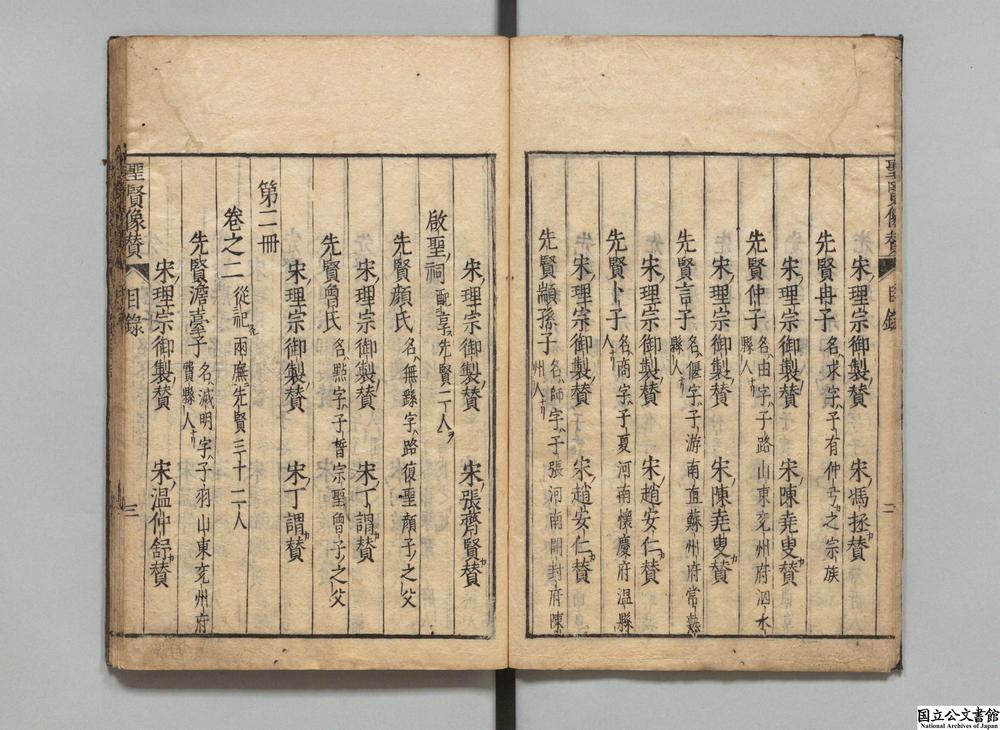 宋理宗御製賛　宋馮拯賛
先賢冉子 名求字子有仲弓之宗族
宋理宗御製賛　宋陳尭叟賛
先賢仲子 名由字子路山東兖州府泗水縣人
宋理宗御製賛　宋陳尭叟賛
先賢言子 名偃字子游南直蘇州府常熟縣人
宋理宗御製賛　宋趙安仁賛
先賢卜子 名商字子夏河南懷慶府温縣人
宋理宗御製賛　宋趙安仁賛
先賢顓孫子 名師字子張河南開封府陳州人
聖賢像賛　目錄　二
宋理宗御製賛　宋張齊賢賛
啟聖祠 配享先賢二人
先賢顔氏 名無繇字路復聖顔子之父
宋理宗御製賛　宋丁謂賛
先賢曾氏 名㸃字子晳宗聖曾子之父
宋理宗御製賛　宋丁謂賛
第二冊
卷之二 從祀兩廡先賢三十二人
先賢澹臺子 名滅明字子羽山東兖州府費縣人
宋理宗御製賛　宋温仲舒賛
聖賢像賛　目錄　三
国立公文書館
National Archives of Japan